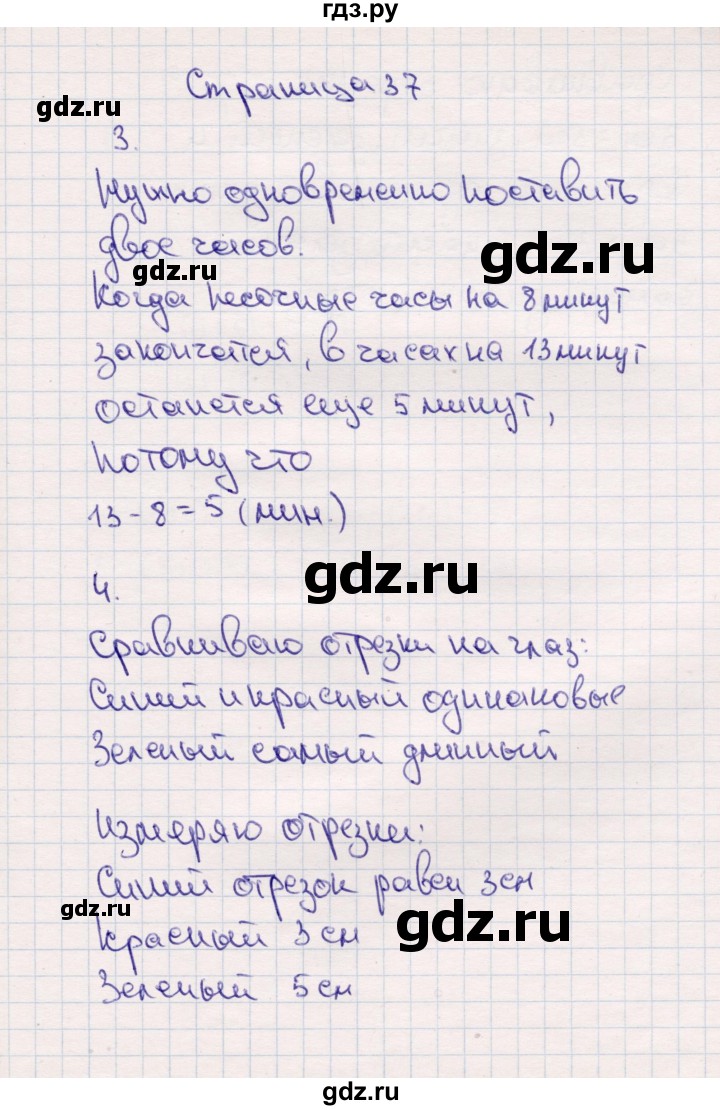 гдз.ру
Страница 37
gdz.ru
3.
Нужно одновременно поставить
двое часов.
gdz.ru
gdz.ru
Когда песочные часы на 8 минут
закончатся, в часах на 13 минут
останется еще 5 минут,
потому что
13 - 8 = 5 (мин.)
gdz.ru
4.
Сравниваю отрезки на глаз:
Синий и красный одинаковые
Зеленый самый длинный
Измеряю отрезки:
Синий отрезок равен 3см
gdz.ru
gdz.ru
Красный 3 см
Зеленый 5 см
gdz.ru